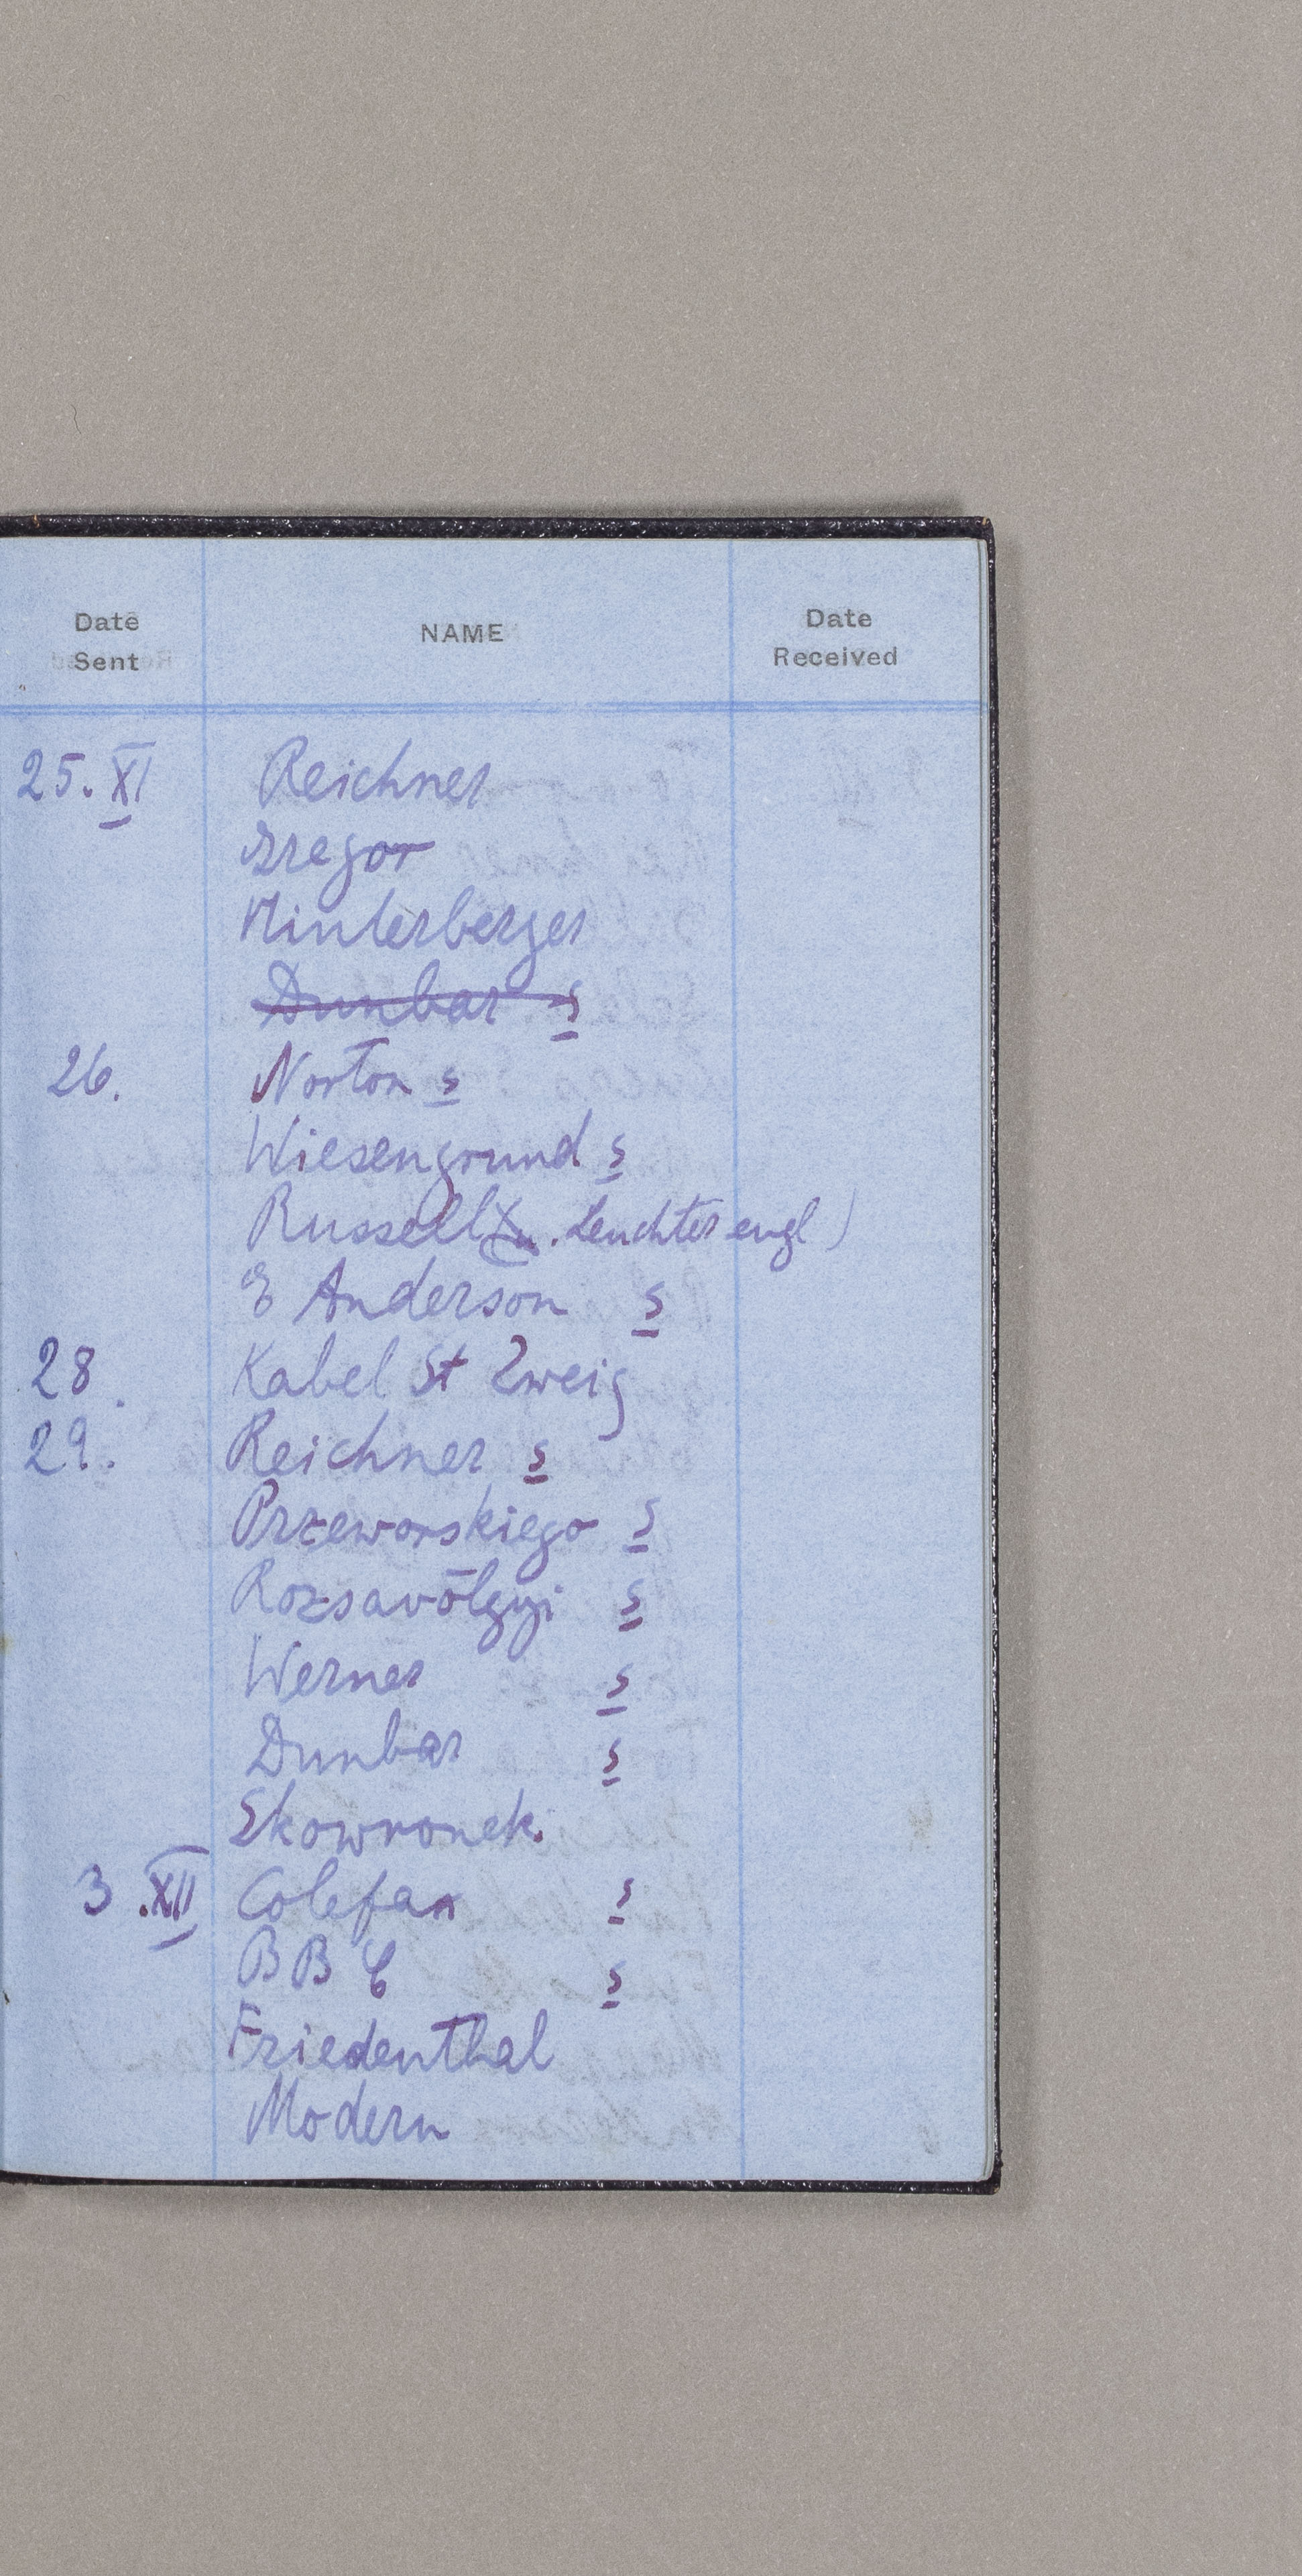 Date Sent NAME Date Received
25. XI Reichner
Gregor
Hinterberger
Dunbar s
26. Norton s
Wiesengrund s
Russell . Leuchter engl )
E Anderson s
28. Kabel St Zweig
29. Reichner s
Przeworskiego s
Rozsavölgyi s
Werner s
Dunbar s
Skowronek
3 .XII Colefax s
B B C s
Friedenthal
Modern